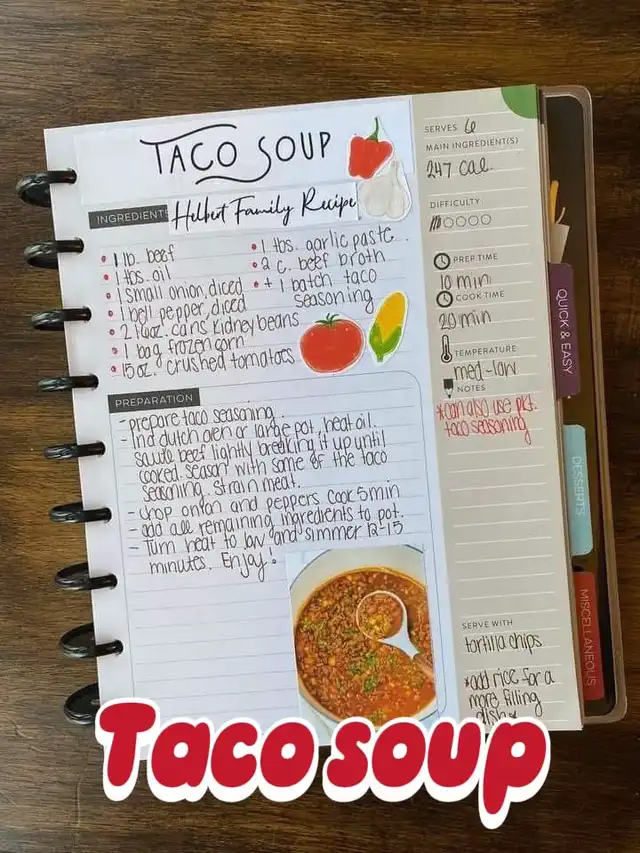 TACO SOUP
INGREDIENTS Helbert Family Recipe
• 1 lb. beef
• 1 tbs. oil
• 1 small onion, diced
• 1 bell pepper, diced
• 2 16oz. cans kidney beans
• 1 bag frozen corn
• 15 oz. crushed tomatoes
• 1 tbs. garlic paste
• 2 c. beef broth
• + 1 batch taco
seasoning
PREPARATION
- prepare taco seasoning.
- In a dutch oven or large pot, heat oil.
saute beef lightly breaking it up until
cooked. season with some of the taco
seasoning. strain meat.
- chop onion and peppers cook 5 min
- add all remaining ingredients to pot.
- Turn heat to low and simmer 12-15
minutes. Enjoy!
SERVES 6
MAIN INGREDIENT(S)
247 cal.
DIFFICULTY
PREP TIME
10 min
COOK TIME
20 min
TEMPERATURE
med-low
NOTES
*can also use pkt.
taco seasoning
SERVE WITH
tortilla chips
*add rice for a
more filling
dish*
QUICK & EASY
DESSERTS
MISCELLANEOUS
Taco soup